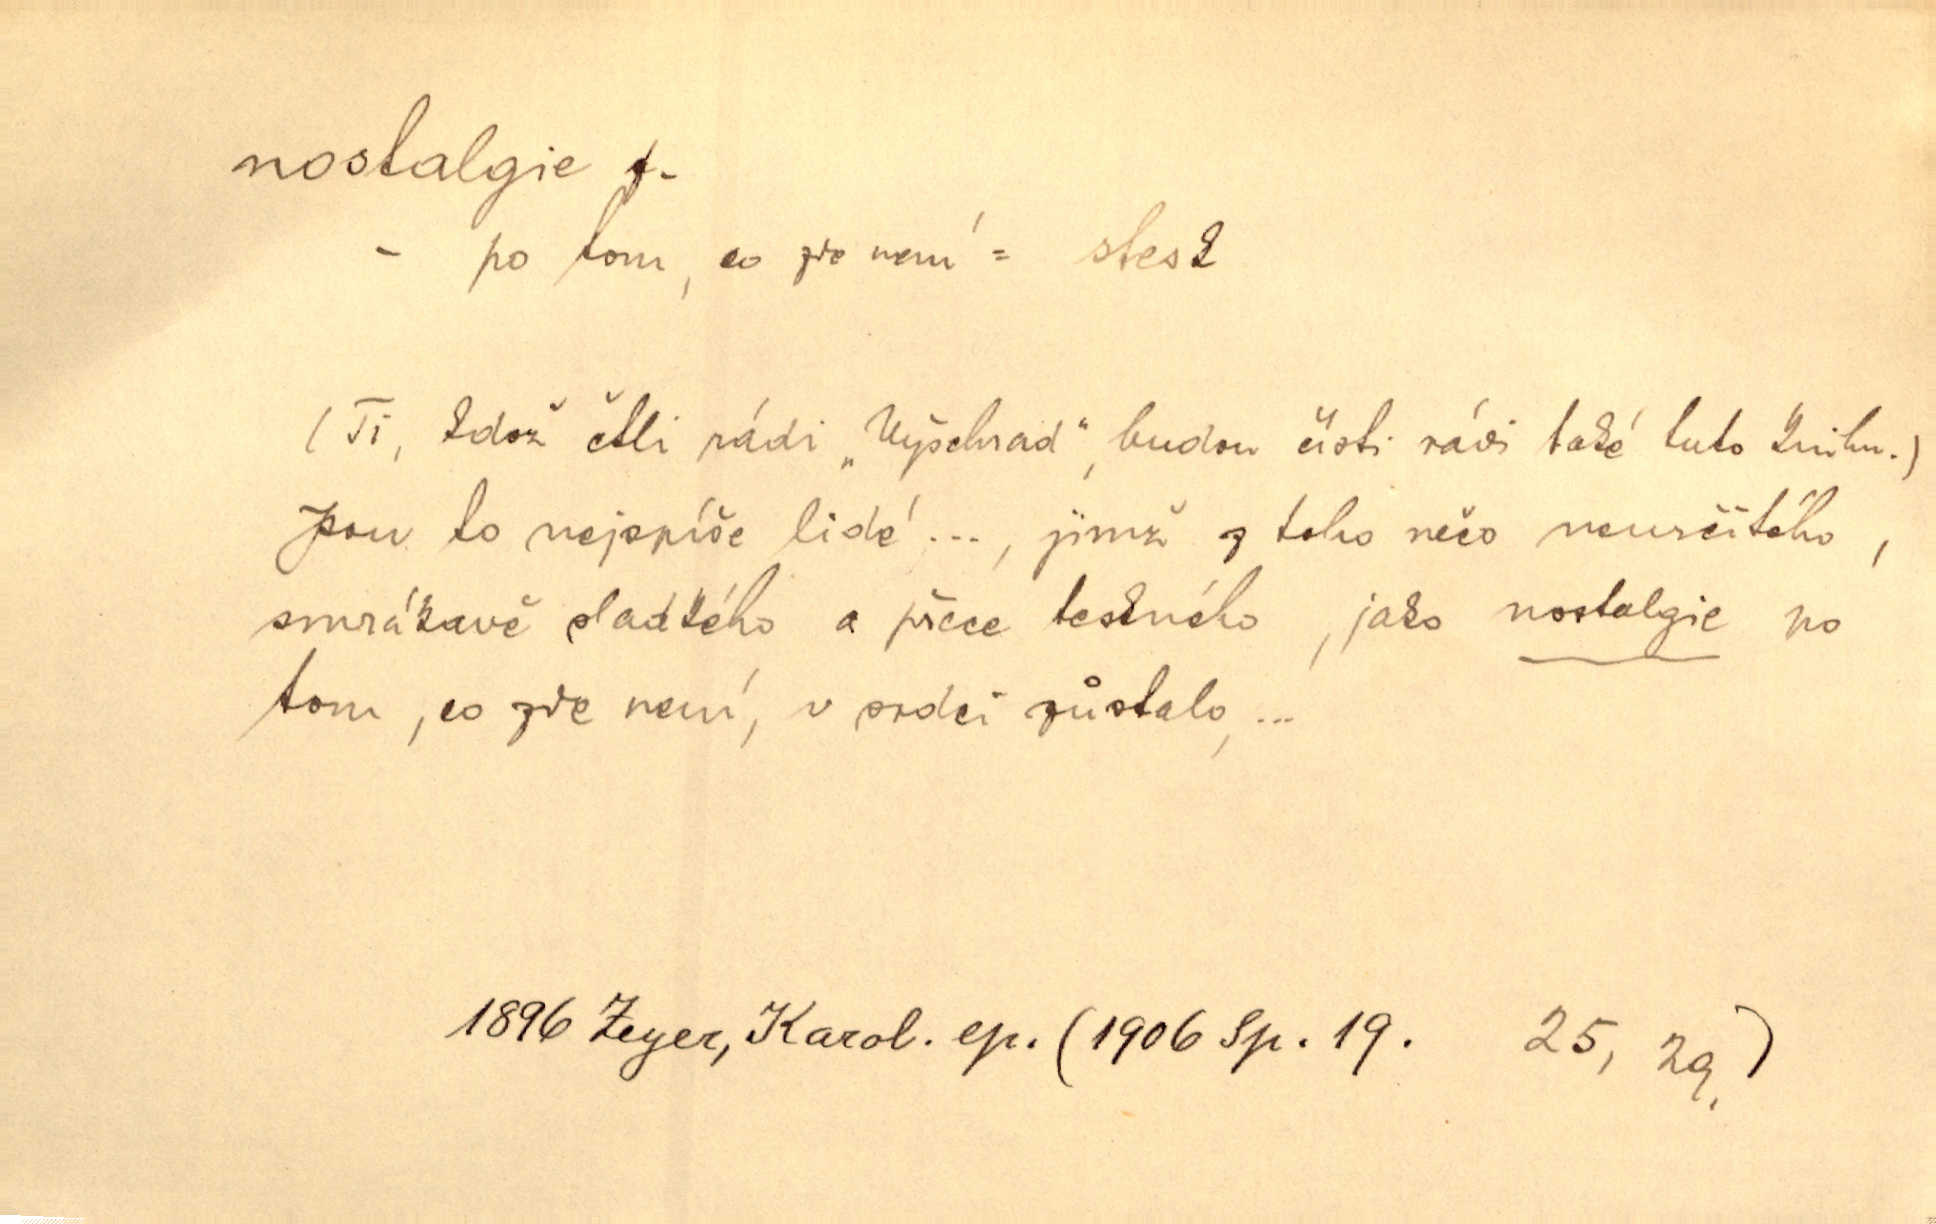 nostalgie f.
- po tom, co zde není = stesk
(Ti, kdož četli rádi „Vyšehrad“, budou čísti rádi také tuto knihu.)
Jsou to nejspíše lidé ..., jimž z toho něco neurčitého,
smrákavě sladkého a přece teskného, jako nostalgie po
tom, co zde není, v srdci zůstalo, ...
1896 Zeyer, Karol. ep. (1906 Sp. 19. 25, 29,)